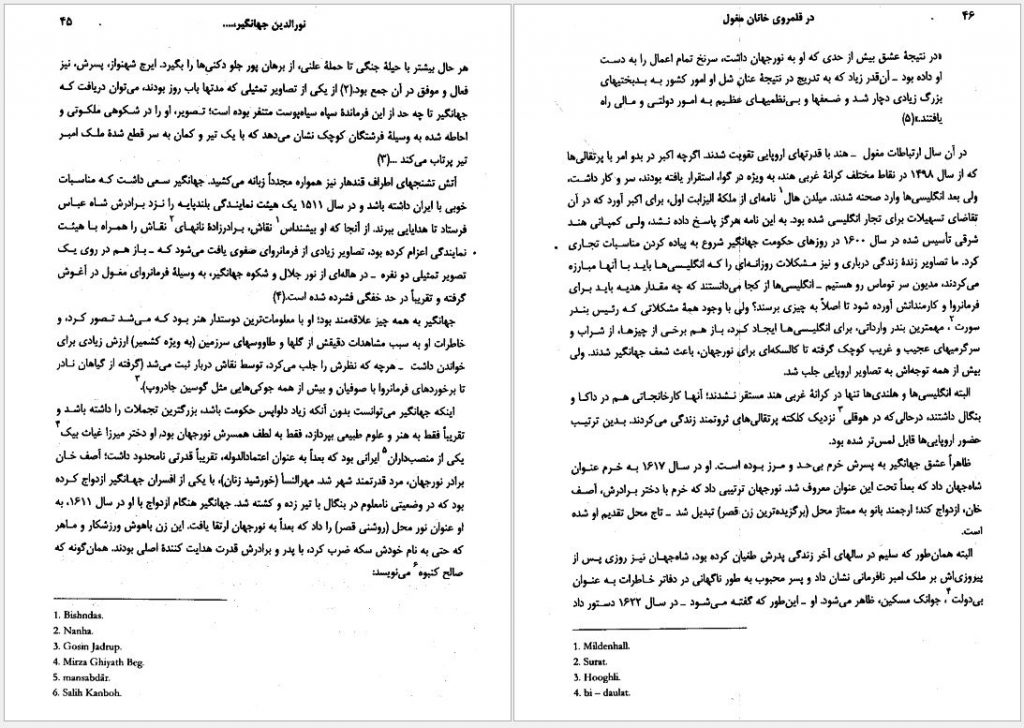 نورالدین جهانگیر.....
۴۵
هر حال بیشتر با حیلهٔ جنگی تا حملهٔ علنی، از برهان پور جلو دکنی‌ها را بگیرد. ایرج شهنواز، پسرش، نیز
فعال و موفق در آن جمع بود.(۲) از یکی از تصاویر تمثیلی که مدتها باب روز بودند، می‌توان دریافت که
جهانگیر تا چه حد از این فرماندهٔ سپاه سیاه‌پوست متنفر بوده است؛ تصویر، او را در شکوهی ملکوتی و
احاطه شده به وسیلهٔ فرشتگان کوچک نشان می‌دهد که با یک تیر و کمان به سر قطع شدهٔ ملک امبر
تیر پرتاب می‌کند ...(۳)
آتش تشنجهای اطراف قندهار نیز همواره مجدداً زبانه می‌کشید. جهانگیر سعی داشت که مناسبات
خوبی با ایران داشته باشد و در سال ۱۵۱۱ یک هیئت نمایندگی بلندپایه را نزد برادرش شاه عباس
فرستاد تا هدایایی ببرند. از آنجا که او بیشنداس۱ نقاش، برادرزادهٔ نانهای۲ نقاش را همراه با هیئت
نمایندگی اعزام کرده بود، تصاویر زیادی از فرمانروای صفوی یافت می‌شود که ـ باز هم در روی یک
تصویر تمثیلی دو نفره ـ در هاله‌ای از نور جلال و شکوه جهانگیر، به وسیلهٔ فرمانروای مغول در آغوش
گرفته و تقریباً در حد خفگی فشرده شده است.(۴)
جهانگیر به همه چیز علاقه‌مند بود؛ او با معلومات‌ترین دوستدار هنر بود که می‌شد تصور کرد، و
خاطرات او به سبب مشاهدات دقیقش از گلها و طاووسهای سرزمین (به ویژه کشمیر) ارزش زیادی برای
خواندن داشت ـ هرچه که نظرش را جلب می‌کرد، توسط نقاش دربار ثبت می‌شد (گرفته از گیاهان نادر
تا برخوردهای فرمانروا با صوفیان و بیش از همه جوکی‌هایی مثل گوسین جادروپ).۳
اینکه جهانگیر می‌توانست بدون آنکه زیاد دلواپس حکومت باشد، بزرگترین تجملات را داشته باشد و
تقریباً فقط به هنر و علوم طبیعی بپردازد، فقط به لطف همسرش نورجهان بود، او دختر میرزا غیاث بیک۴
یکی از منصب‌داران۵ ایرانی بود که بعداً به عنوان اعتمادالدوله، تقریباً قدرتی نامحدود داشت؛ آصف خان
برادر نورجهان، مرد قدرتمند شهر شد. مهرالنسأ (خورشید زنان)، با یکی از افسران جهانگیر ازدواج کرده
بود که در وضعیتی نامعلوم در بنگال با تیر زده و کشته شد. جهانگیر هنگام ازدواج با او در سال ۱۶۱۱، به
او عنوان نور محل (روشنی قصر) را داد که بعداً به نورجهان ارتقا یافت. این زن باهوش ورزشکار و ماهر
که حتی به نام خودش سکه ضرب کرد، با پدر و برادرش قدرت هدایت کنندهٔ اصلی بودند. همان‌گونه که
صالح کنبوه۶ می‌نویسد:
1. Bishndas.
2. Nanha.
3. Gosin Jadrup.
4. Mirza Ghiyath Beg.
5. mansabdār.
6. Salih Kanboh.
در قلمروی خانان مغول
۴۶
«در نتیجهٔ عشق بیش از حدی که او به نورجهان داشت، سرنخ تمام اعمال را به دست
او داده بود ـ آن‌قدر زیاد که به تدریج در نتیجهٔ عنان شل او امور کشور به بدبختیهای
بزرگ زیادی دچار شد و ضعفها و بی‌نظمیهای عظیم به امور دولتی و مالی راه
یافتند.»(۵)
در آن سال ارتباطات مغول ـ هند با قدرتهای اروپایی تقویت شدند. اگرچه اکبر در بدو امر با پرتقالی‌ها
که از سال ۱۴۹۸ در نقاط مختلف کرانهٔ غربی هند، به ویژه در گوا، استقرار یافته بودند، سر و کار داشت،
ولی بعد انگلیسی‌ها وارد صحنه شدند. میلدن هال۱ نامه‌ای از ملکهٔ الیزابت اول، برای اکبر آورد که در آن
تقاضای تسهیلات برای تجار انگلیسی شده بود. به این نامه هرگز پاسخ داده نشد، ولی کمپانی هند
شرقی تأسیس شده در سال ۱۶۰۰ در روزهای حکومت جهانگیر شروع به پیاده کردن مناسبات تجاری
کرد. ما تصاویر زندهٔ زندگی درباری و نیز مشکلات روزانه‌ای را که انگلیسی‌ها باید با آنها مبارزه
می‌کردند، مدیون سر توماس رو هستیم ـ انگلیسی‌ها از کجا می‌دانستند که چه مقدار هدیه باید برای
فرمانروا و کارمندانش آورده شود تا اصلاً به چیزی برسند؟ ولی با وجود همهٔ مشکلاتی که رئیس بندر
سورت۲، مهمترین بندر وارداتی، برای انگلیسی‌ها ایجاد کرد، باز هم برخی از چیزها، از شراب و
سرگرمیهای عجیب و غریب کوچک گرفته تا کالسکه‌ای برای نورجهان، باعث شعف جهانگیر شدند. ولی
بیش از همه توجه‌اش به تصاویر اروپایی جلب شد.
البته انگلیسی‌ها و هلندی‌ها تنها در کرانهٔ غربی هند مستقر نشدند؛ آنها کارخانجاتی هم در داکا و
بنگال داشتند، درحالی‌که در هوقلی۳ نزدیک کلکته پرتقالی‌های ثروتمند زندگی می‌کردند. بدین ترتیب
حضور اروپایی‌ها قابل لمس‌تر شده بود.
ظاهراً عشق جهانگیر به پسرش خرم بی‌حد و مرز بوده است. او در سال ۱۶۱۷ به خرم عنوان
شاه‌جهان داد که بعداً تحت این عنوان معروف شد. نورجهان ترتیبی داد که خرم با دختر برادرش، آصف
خان، ازدواج کند؛ ارجمند بانو به ممتاز محل (برگزیده‌ترین زن قصر) تبدیل شد ـ تاج محل تقدیم او شده
است.
البته همان‌طور که سلیم در سالهای آخر زندگی پدرش طغیان کرده بود، شاه‌جهان نیز روزی پس از
پیروزی‌اش بر ملک امبر نافرمانی نشان داد و پسر محبوب به طور ناگهانی در دفاتر خاطرات به عنوان
بی‌دولت۴، جوانک مسکین، ظاهر می‌شود. او ـ این‌طور که گفته می‌شود ـ در سال ۱۶۲۲ دستور داد
1. Mildenhall.
2. Surat.
3. Hooghli.
4. bi – daulat.